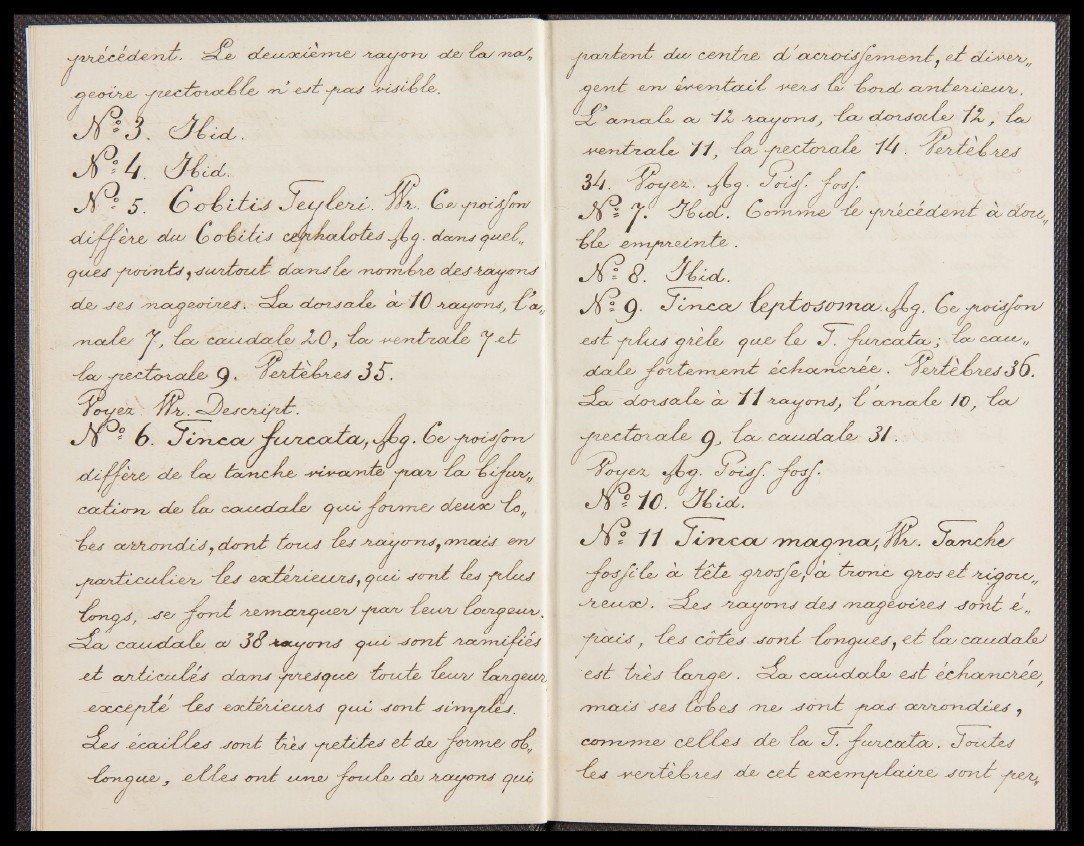 précédent. Le deuxième rayon de la na„
geoire pectorable n'est pas visible.
Nº 3. Ibid.
Nº 4. Ibid.
Nº 5. Cobitis Teyleri. Wr. Ce poisson
diffère du Cobitis cephalotes Ag. dans quel„
ques points, surtout dans le nombre des rayons
de ses nageoires. La dorsale à 10 rayons, l'a„
nale 7, la caudale 20, la ventrale 7 et
la pectorale 9. Vertèbres 35.
Voyez. Wr. Descript.
Nº 6. Tinca furcata, Ag. Ce poisson
diffère de la tanche vivante par la bifur„
cation de la caudale qui forme deux lo„
bes arrondis, dont tous les rayons, mais en
particulier les extérieurs, qui sont les plus
longs, se font remarquer par leur largeur.
La caudale a 38 rayons qui sont ramifiés
et articulés dans presque toute leur largeur
excepté les extérieurs qui sont simples.
Les écailles sont très petites et de forme ob„
longue, elles ont une foule de rayons qui
partent du centre d'acroissement, et diver„
gent en éventail vers le bord anterieur.
L'anale a 12 rayons, la dorsale 12, la
ventrale 11, la pectorale 14. Vertèbres
34. Voyez. Ag. Poiss. foss.
Nº 7. Ibid. Comme le précédent à dou„
ble empreinte.
Nº 8. Ibid.
Nº 9. Tinca leptosoma. Ag. Ce poisson
est plus grèle que le T. furcata; la cau„
dale fortement échancrée. Vertèbres 36.
La dorsale à 11 rayons, l'anale 10, la
pectorale 9, la caudale 31.
Voyez Ag. Poiss. foss.
Nº 10. Ibid.
Nº 11 Tinca magna, Wr. Tanche
fossile à tête grosse, à tronc gros et rigou„
reux. Les rayons des nageoires sont é„
pais, les côtes sont longues, et la caudale
est très large. La caudale est échancrée,
mais ses lobes ne sont pas arrondies,
comme celles de la T. furcata. Toutes
les vertèbres de cet exemplaire sont per„